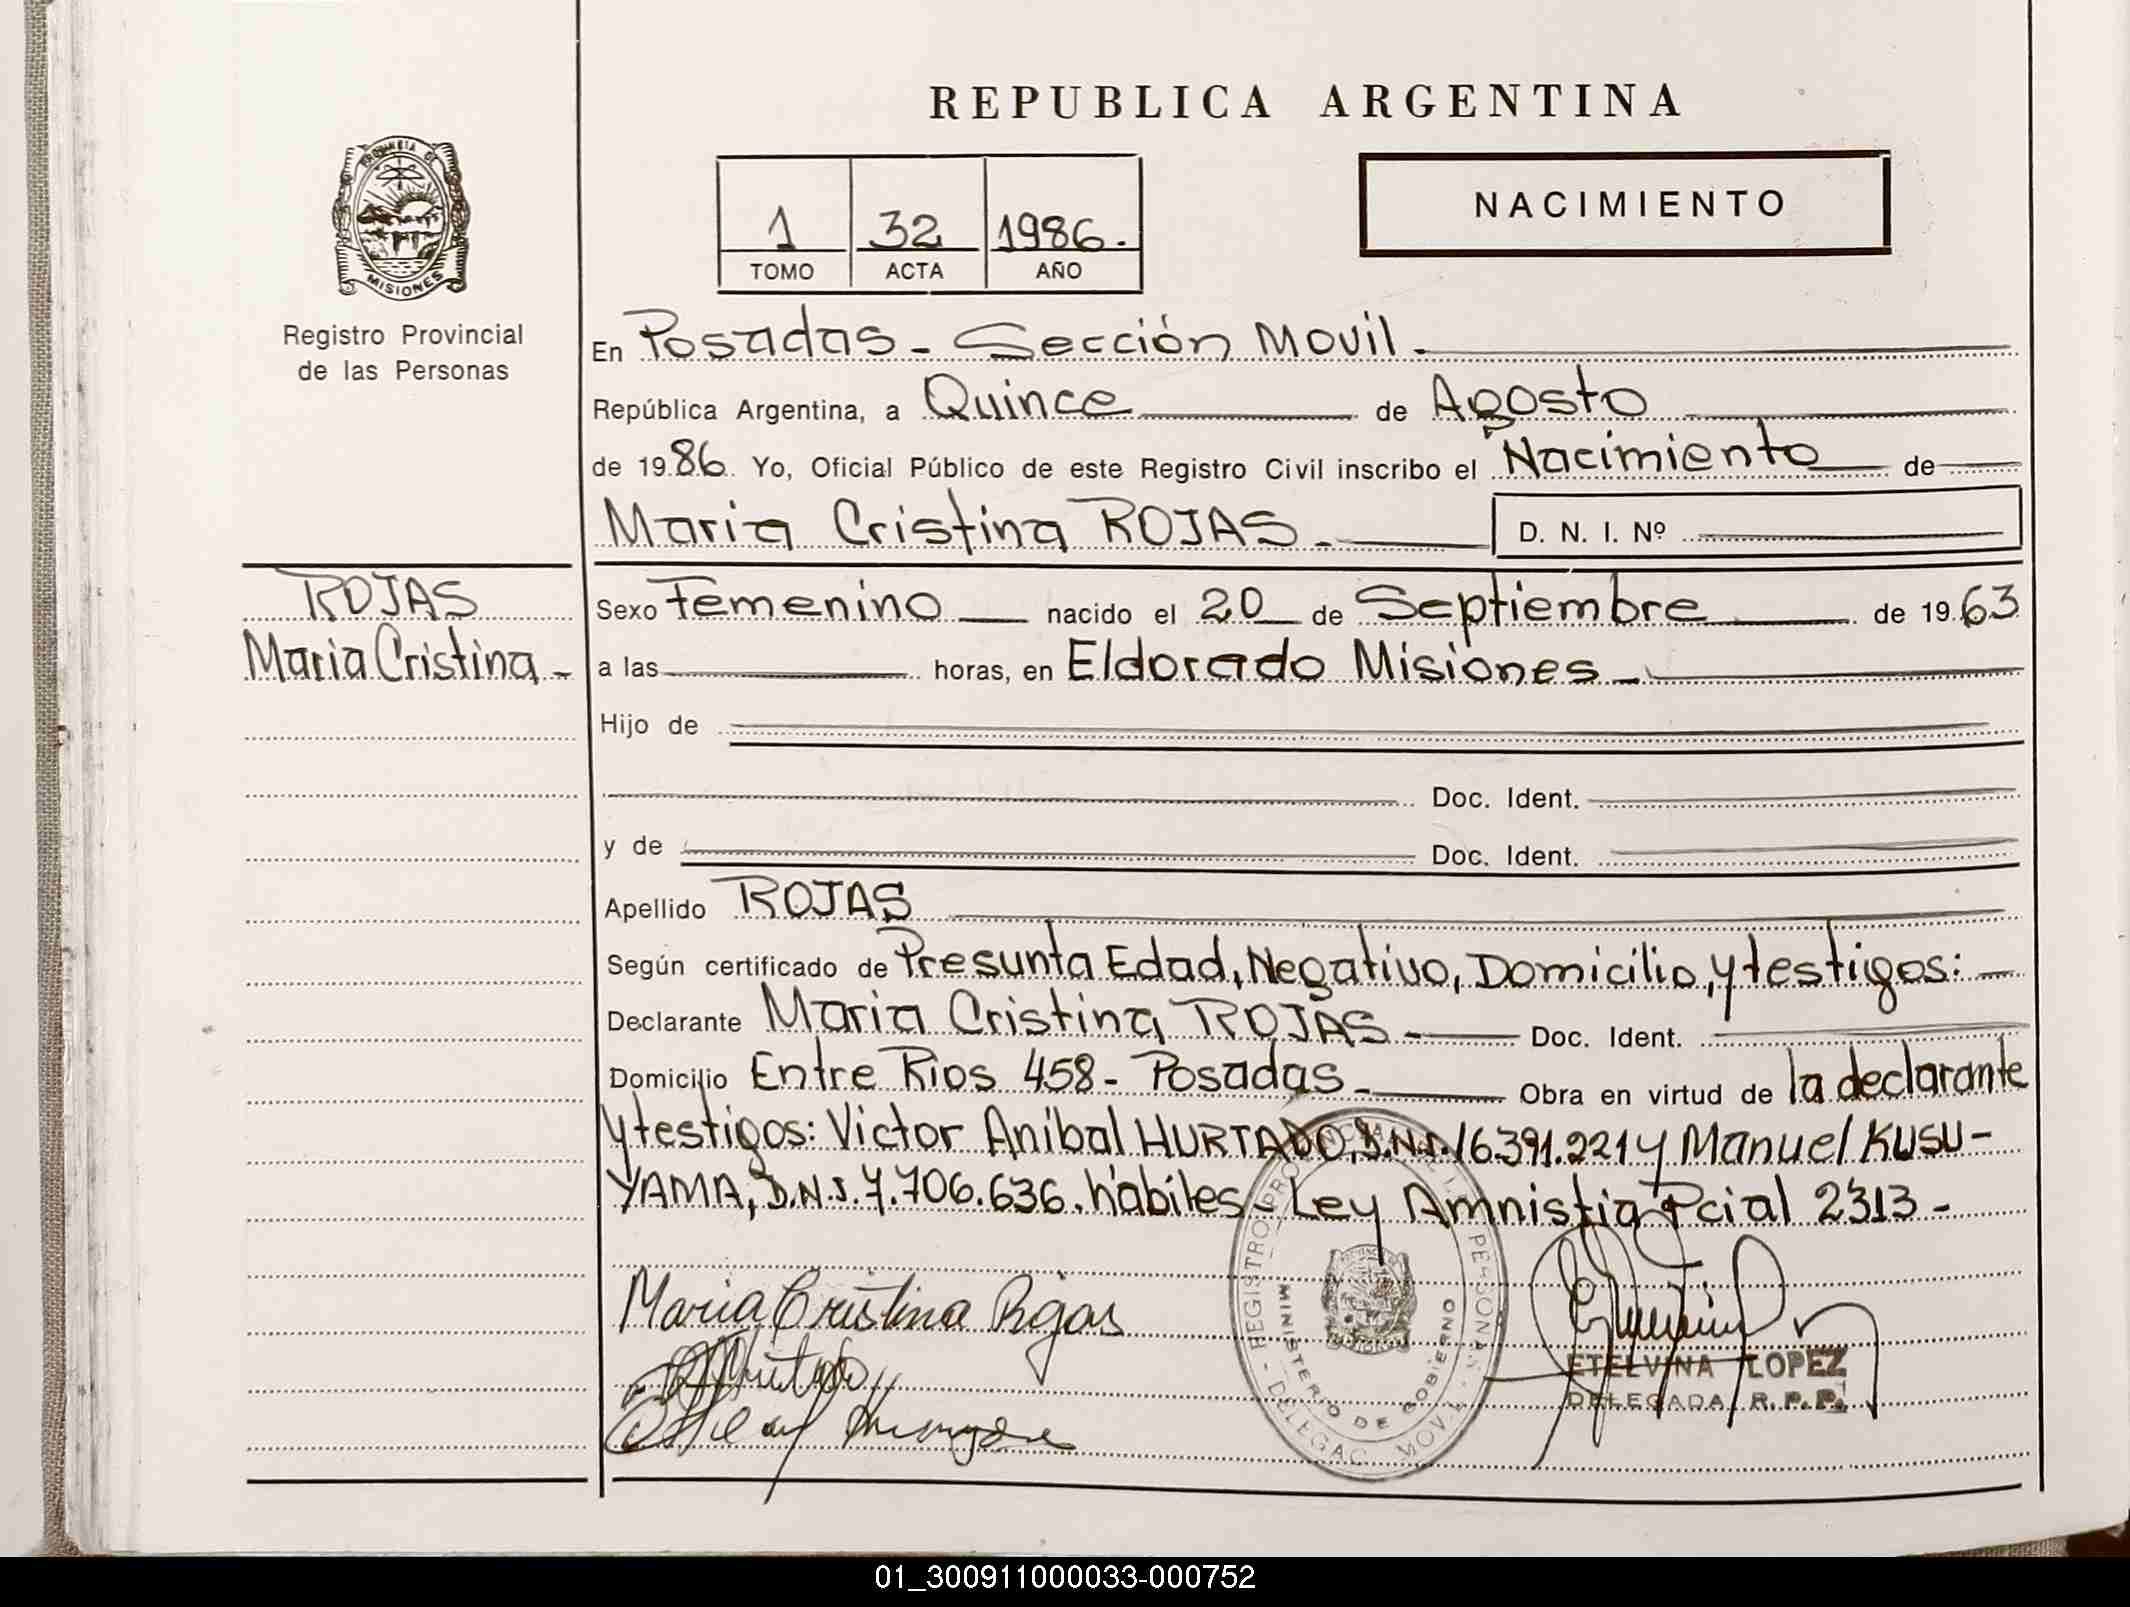 REPUBLICA ARGENTINA
PROVINCIA DE
MISIONES
Registro Provincial
de las Personas
1 32 1986.
TOMO ACTA AÑO
NACIMIENTO
En Posadas - Sección Movil -
República Argentina, a Quince de Agosto
de 1986. Yo, Oficial Público de este Registro Civil inscribo el Nacimiento de
Maria Cristina ROJAS.- D. N. I. Nº
ROJAS
Maria Cristina -
Sexo Femenino nacido el 20 de Septiembre de 1963
a las horas, en Eldorado Misiones -
Hijo de
Doc. Ident.
y de Doc. Ident.
Apellido ROJAS
Según certificado de Presunta Edad, Negativo, Domicilio, y testigos: -
Declarante Maria Cristina ROJAS - Doc. Ident.
Domicilio Entre Rios 458 - Posadas - Obra en virtud de la declarante
y testigos: Victor Anibal HURTADO, D.N.I. 16.391.221 y Manuel KUSU-
YAMA, D.N.I. 7.706.636. hábiles - Ley Amnistia Pcial 2313 -
Maria Cristina Rojas
REGISTRO PROVINCIAL DE LAS PERSONAS
MINISTERIO DE GOBIERNO
DELEGAC. MOVIL
ETELVINA LOPEZ
DELEGADA R. P. P.
01_300911000033-000752